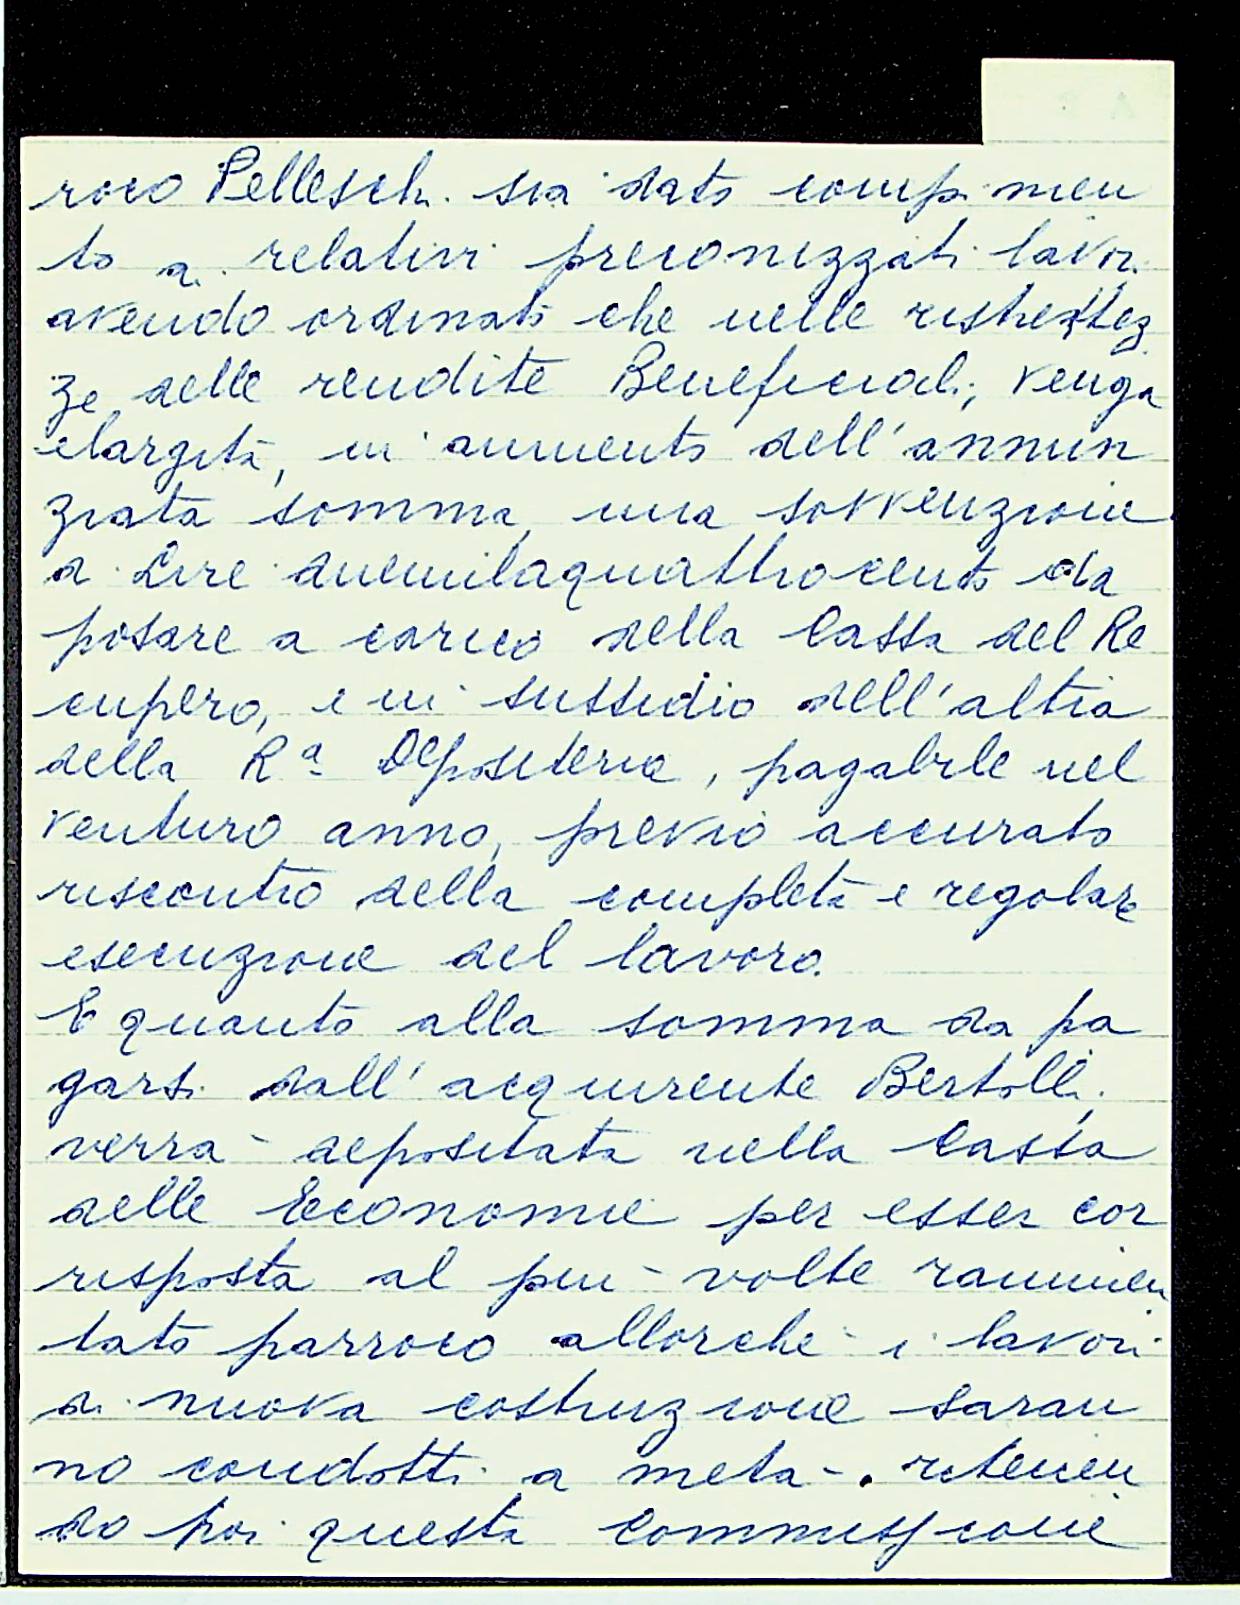 roco Pelleschi sia dato compimen
to ai relativi preconizzati lavori
avendo ordinato che nelle ristrettez
ze delle rendite Beneficiali, venga
elargita, in aumento dell'annun
ziata somma, una sovvenzione
di Lire duemilaquattrocento da
posare a carico della Cassa del Re
cupero, e in sussidio dell'altra
della Rª Depositeria, pagabile nel
venturo anno, previo accurato
riscontro della completa e regolare
esecuzione del lavoro.
E quanto alla somma da pa
garsi dall'acquirente Bertolli,
verrà depositata nella Cassa
delle Economie per esser cor
risposta al più volte rammen
tato parroco allorchè i lavori
di nuova costruzione saran
no condotti a metà. ritenen
do poi questa Commissione